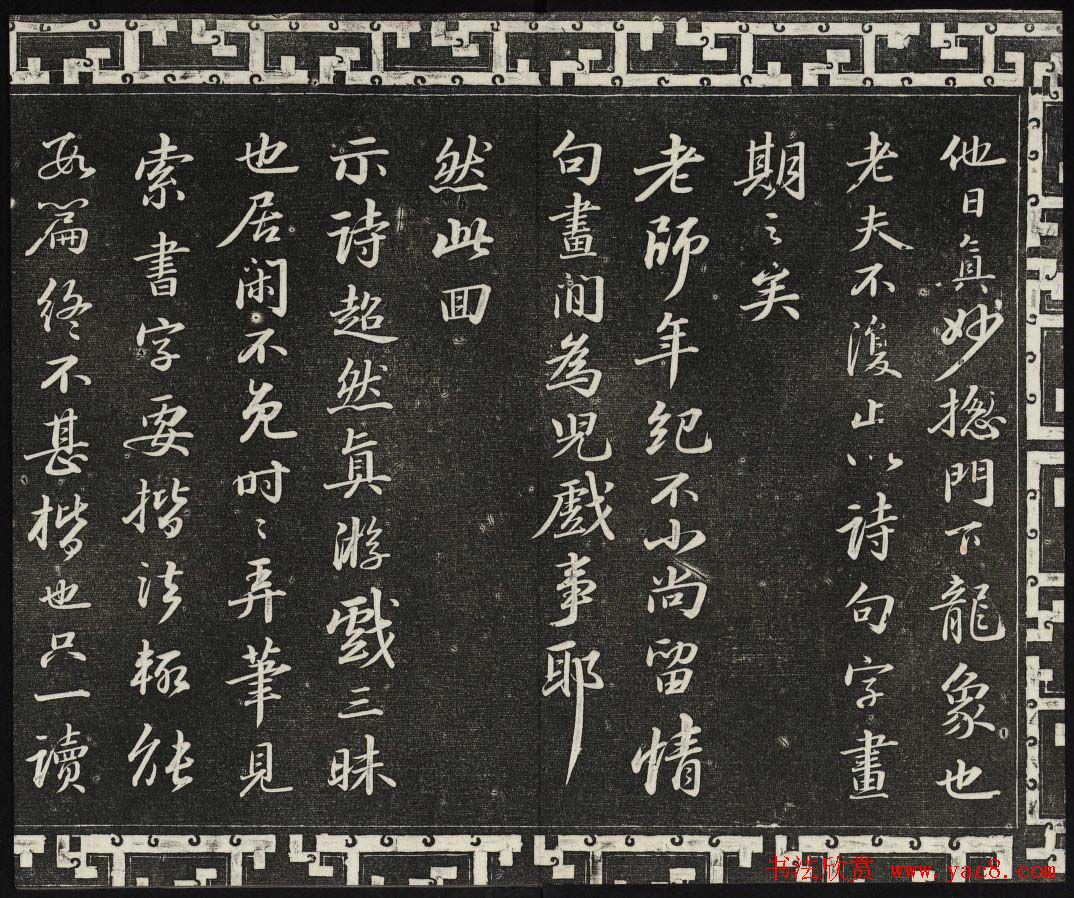 他日真妙摠門下龍象也
老夫不復止以詩句字畫
期之矣
老師年紀不小尚留情
句畫間為兒戲事耶
然此回
示詩超然真游戲三昧
也居閑不免時〻弄筆見
索書字要揩法輒能
數篇終不甚楷也只一讀
书法欣赏 www.yac8.com